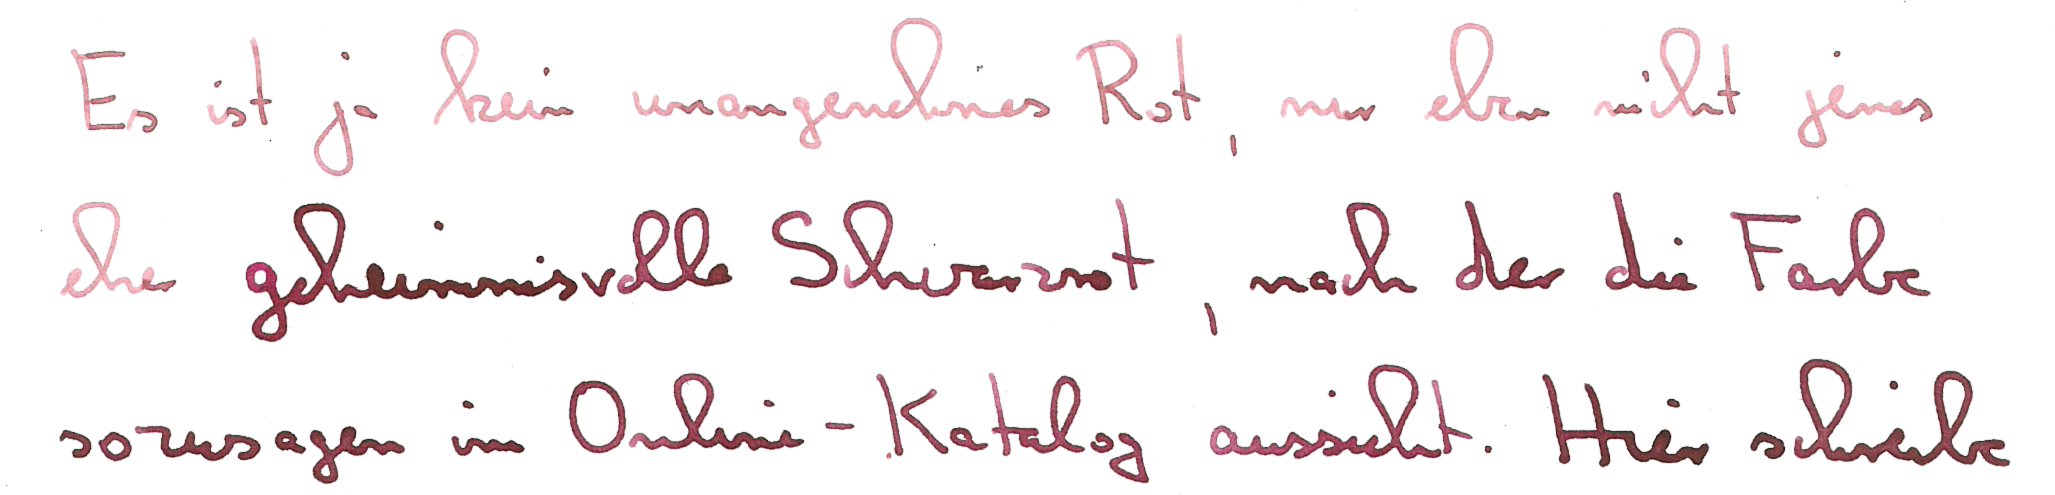 Es ist ja kein unangenehmes Rot, nur eben nicht jenes
eher geheimnisvolle Schwarzrot, nach der die Farbe
sozusagen im Online-Katalog aussieht. Hier schreibe